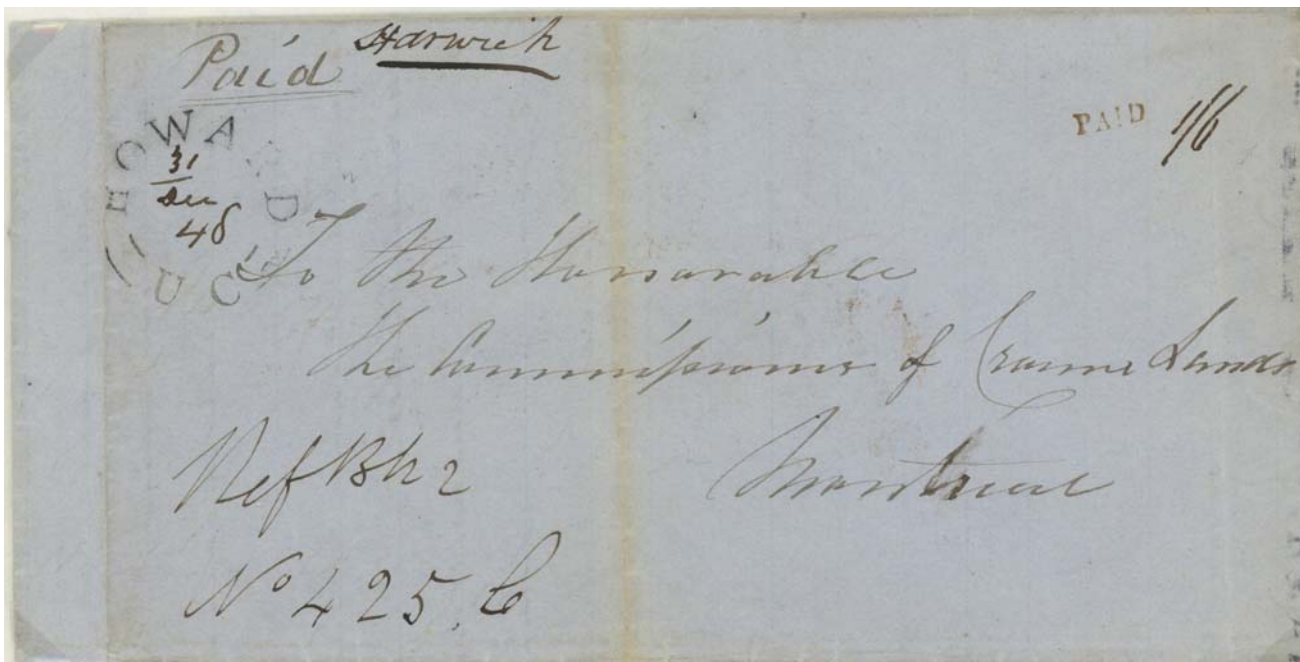 Paid Harwich
PAID 1/6
HOWARD U C
31
Dec
48
To the Honorable
The Commissioner of Crown Lands
Montreal
Ref Bk 2
No 425. C